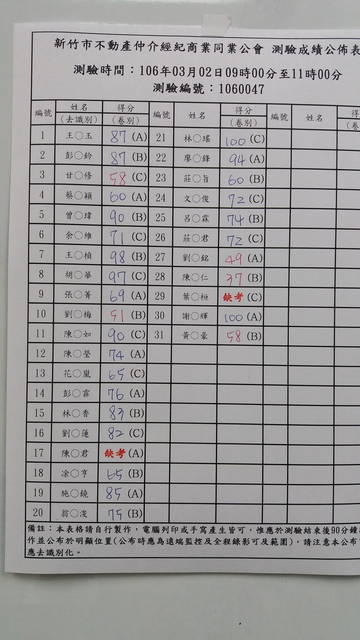 新竹市不動產仲介經紀商業同業公會 測驗成績公佈表
測驗時間：106年03月02日09時00分至11時00分
測驗編號：1060047
編號 姓名(去識別) 得分(卷別) 編號 姓名(去識別) 得分(卷別) 編號 姓名
1 王○玉 87 (A) 21 林○瑤 100 (C)
2 彭○鈴 87 (B) 22 廖○鋒 94 (A)
3 甘○修 58 (C) 23 莊○旨 60 (B)
4 蔡○穎 60 (A) 24 文○俊 72 (C)
5 曾○瑋 90 (B) 25 呂○霖 74 (B)
6 余○維 71 (C) 26 莊○君 72 (C)
7 王○楨 98 (B) 27 劉○銘 49 (A)
8 胡○華 97 (C) 28 陳○仁 37 (B)
9 張○菁 69 (A) 29 葉○桓 缺考 (C)
10 劉○梅 51 (B) 30 謝○輝 100 (A)
11 陳○如 90 (C) 31 黃○豪 58 (B)
12 陳○瑩 74 (A)
13 花○嵐 65 (C)
14 彭○霖 76 (A)
15 林○香 83 (B)
16 劉○蓮 82 (C)
17 陳○君 缺考 (A)
18 凃○亨 65 (B)
19 施○鐃 85 (A)
20 翁○淩 75 (B)
備註：本表格請自行製作，電腦列印或手寫產生皆可，惟應於測驗結束後90分鐘
作並公布於明顯位置(公布時應為遠端監控及全程錄影可及範圍)，請注意本公布
應去識別化。